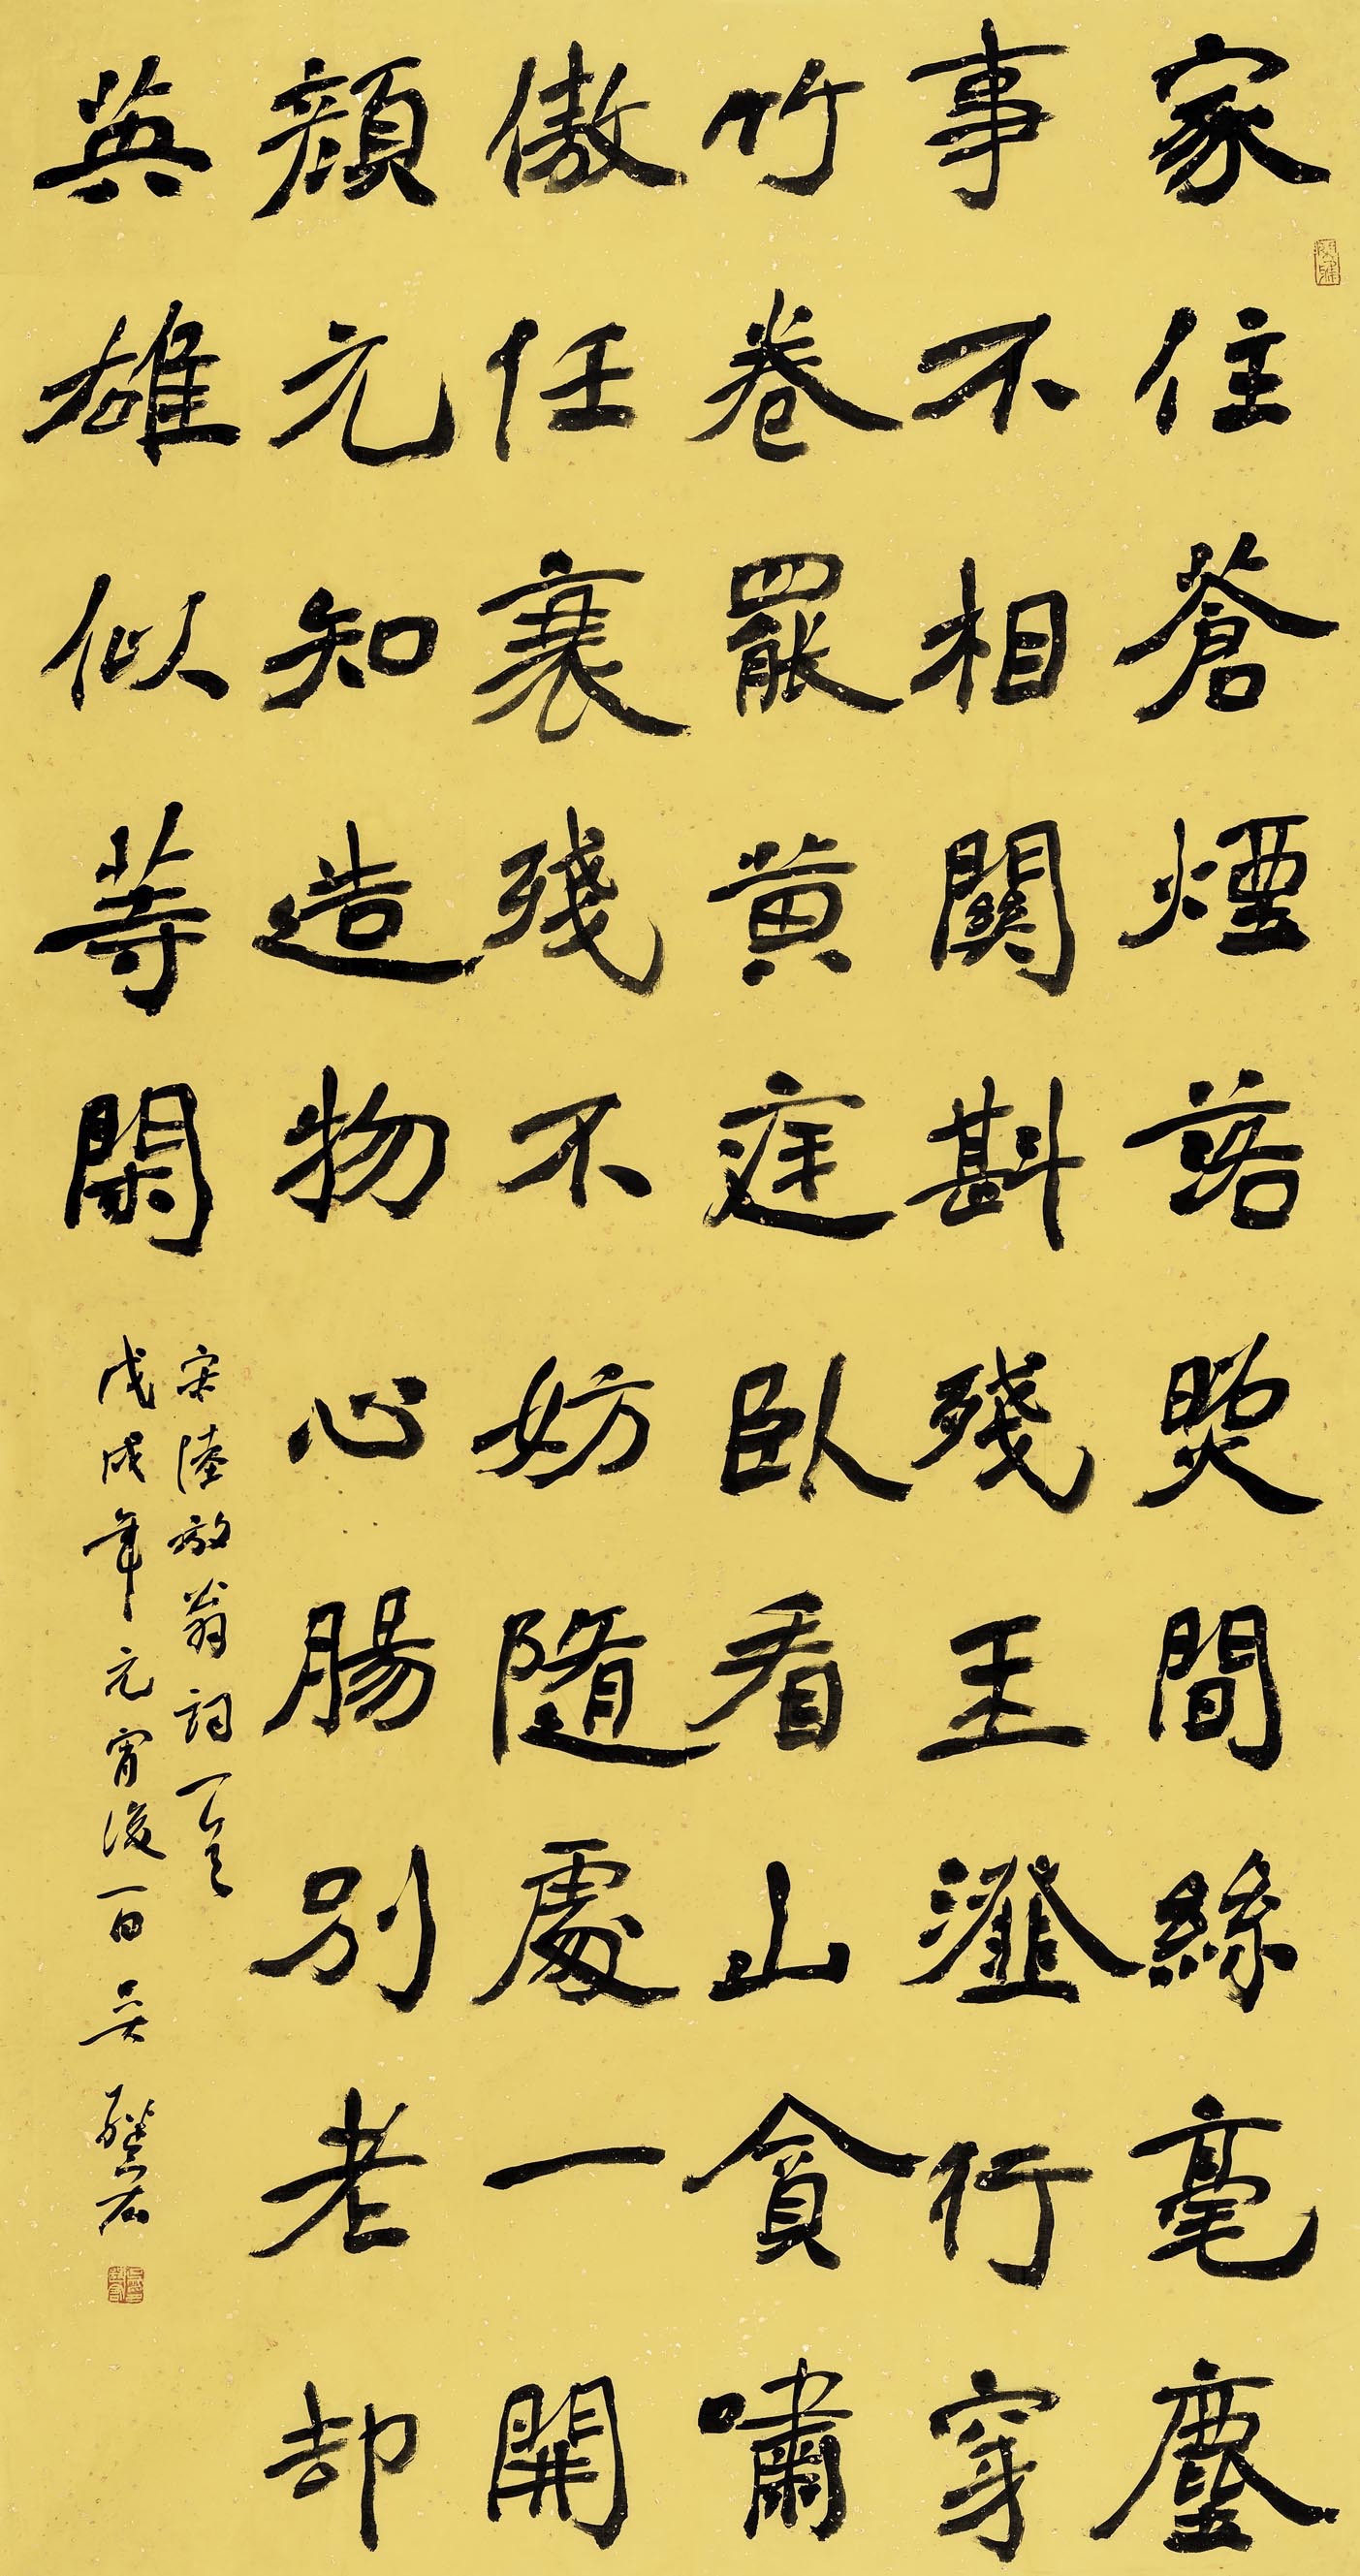 家住蒼煙落照間絲毫塵
事不相關斟殘玉瀣行穿
竹卷罷黃庭臥看山貪嘯
傲任衰殘不妨隨處一開
顏元知造物心腸別老却
英雄似等閑
宋陸放翁詞一首
戊戌年元宵後一日吳